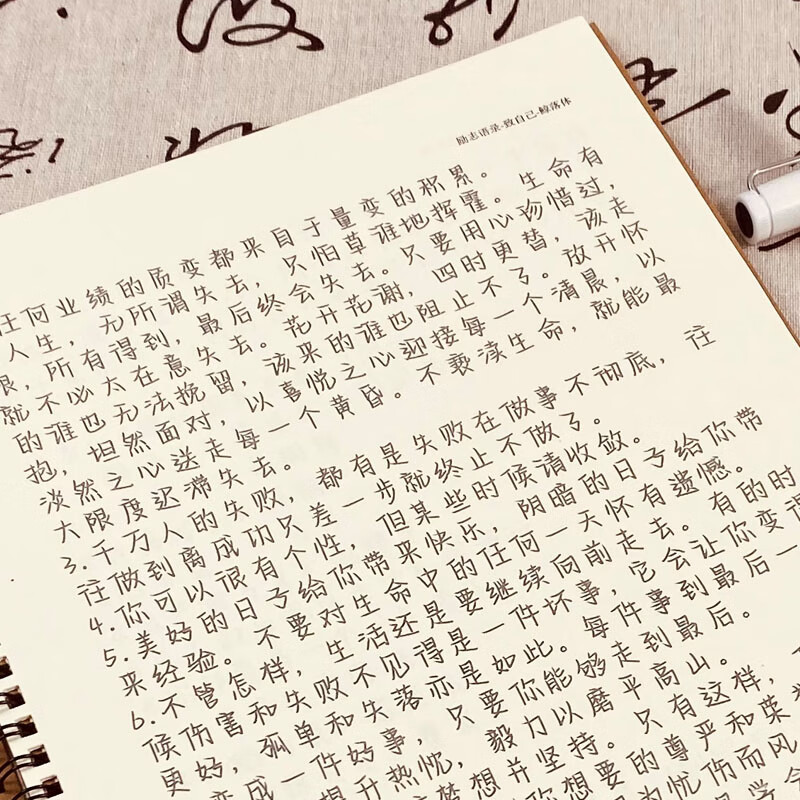 励志语录·致自己·鲸落体
任何业绩的质变都来自于量变的积累。
人生，无所谓失去，只怕草谁地挥霍。生命有
限，所有得到，最后终会失去。只要用心珍惜过，
就不必太在意失去。花开花谢，四时更替，该走
的谁也无法挽留，该来的谁也阻止不了。放开怀
抱，坦然面对，以喜悦之心迎接每一个清晨，以
淡然之心送走每一个黄昏。不亵渎生命，就能最
大限度迟滞失去。
3.千万人的失败，都有是失败在做事不彻底，往
往做到离成功只差一步就终止不做了。
4.你可以很有个性，但某些时候请收敛。
5.美好的日子给你带来快乐，阴暗的日子给你带
来经验。不要对生命中的任何一天怀有遗憾。
6.不管怎样，生活还是要继续向前走去。有的时
候伤害和失败不见得是一件坏事，它会让你变得
更好，孤单和失落亦是如此。每件事到最后一
变成一件好事，只要你能够走到最后。
提升热忱，毅力以磨平高山。
梦想并坚持。只有这样，
你想要的尊严和荣
为忧伤而风